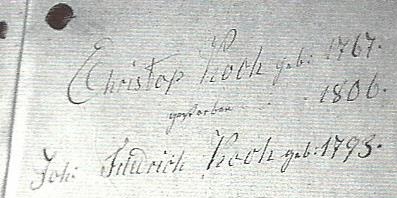 Christop Koch geb: 1767.
gestorben . . . 1806.
Joh: Fridrich Koch geb: 1793.